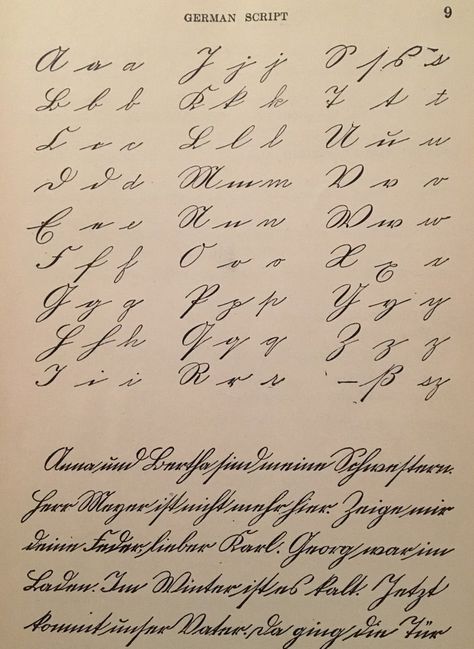 GERMAN SCRIPT 9
A a a J j j S ſ s ß s
B b b K k k T t t
C c c L l l U u u
D d d M m m V v v
E e e N n n W w w
F f f O o o X x x
G g g P p p Y y y
H h h Q q q Z z z
I i i R r r — ß sz
Anna und Bertha sind meine Schwestern.
Herr Meyer ist nicht mehr hier. Zeige mir
deine Feder, lieber Karl. Georg war im
Laden. Im Winter ist es kalt. Jetzt
kommt unser Vater. Da ging die Tür